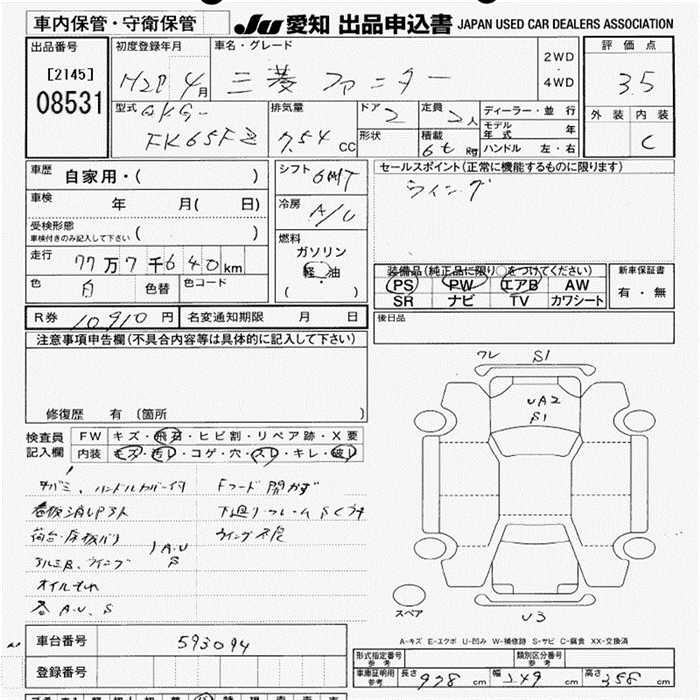 車内保管・守衛保管
JU 愛知 出品申込書 JAPAN USED CAR DEALERS ASSOCIATION
出品番号 初度登録年月 車名・グレード 評価点
[2145] H2P 4月 三菱 ファイター 2WD・4WD 3.5
08531 型式 QKG- 排気量 ドア 2 定員 2人 ディーラー・並行 外装 内装
モデル年式 年
FK65FZ 7.54 CC 形状 積載 6t Kg ハンドル 左・右 C
車歴 自家用・( ) シフト 6MT セールスポイント(正常に機能するものに限ります)
車検 年 月( 日) 冷房 A/C ウイング
受検形態
車検付きのみ記入して下さい ( ) 燃料
走行 77万7千640km ガソリン
軽・油
( )
装備品(純正品に限り○をつけてください) 新車保証書
色 白 色替 色コード PS PW エアB AW 有・無
SR ナビ TV カワシート
R券 10910円 名変通知期限 月 日 後日品
注意事項申告欄(不具合内容等は具体的に記入して下さい)
ワレ S1
UA2
S1
修復歴 有 (箇所 )
検査員 FW キズ・飛石・ヒビ割・リペア跡・X要
記入欄 内装 キズ・汚レ・コゲ・穴・スレ・キレ・破レ
ハンドルカバー付 Fフード開かず
下廻りフレームSくさり
A.U
S
オイルもれ
A.U.S
スペア
U3
A-キズ E-エクボ U-凹み W-補修跡 S-サビ C-腐食 XX-交換済
車台番号 593094
形式指定番号 参考 類別区分番号 参考
登録番号 車庫証明用 参考 長さ cm 幅 249 cm 高さ 358 cm